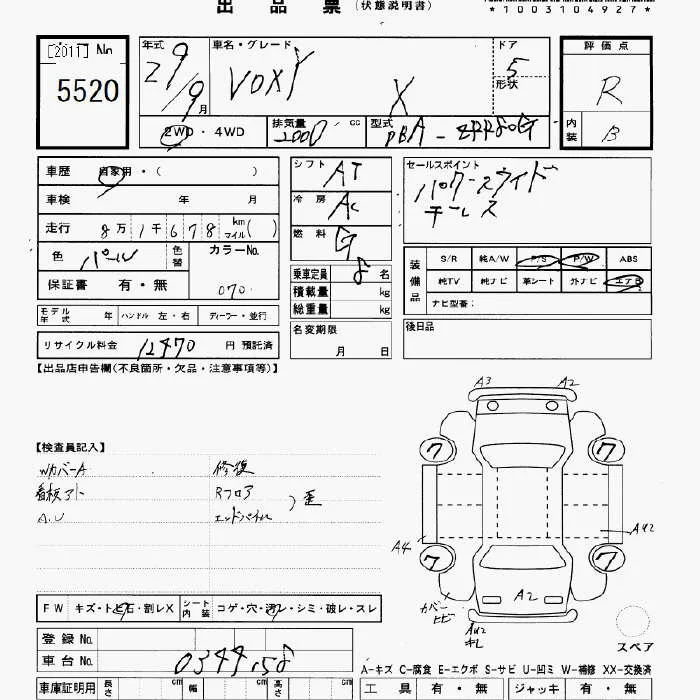 出品票 (状態説明書)
*1003104927*
[2011] No
5520
年式 車名・グレード ドア 評価点
29/9月 VOXY X 5 R
形状
2WD・4WD 排気量 2000 cc 型式 DBA-ZRR80G 内装 B
車歴 自家用・( )
シフト AT
セールスポイント
車検 年 月
冷房 AC
パワースライド
走行 8万1千678 km マイル( )
燃料 G
色 パール 色替 カラーNo. 070
乗車定員 8名
装備品 S/R 純A/W P/S P/W ABS
純TV 純ナビ 革シート 外ナビ エアB
ナビ型番:
保証書 有・無
積載量 kg
総重量 kg
モデル年式 年 ハンドル 左・右 ディーラー・並行
名変期限 月 日
後日品
リサイクル料金 12470 円 預託済
【出品店申告欄(不良箇所・欠品・注意事項等)】
A3 A2
【検査員記入】
7 7
WカバーA 修復
看板アト Rフロア
A.U エンドパネル ) 歪
AU2
A4
7 7
A2
カバーヒビ
AU2
キレ
FW キズ・トビ石・割レX シート内装 コゲ・穴・汚レ・シミ・破レ・スレ
スペア
登録No.
車台No.
A-キズ C-腐食 E-エクボ S-サビ U-凹ミ W-補修 XX-交換済
車庫証明用 長さ cm 幅 cm 高さ cm
工具 有・無 ジャッキ 有・無